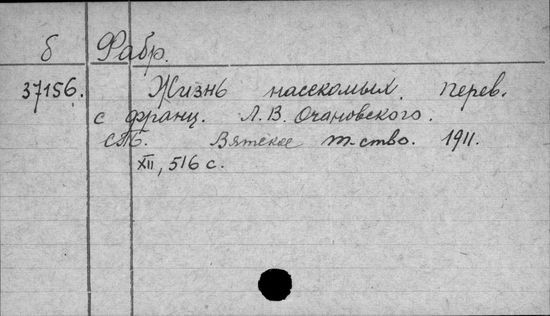 б Фабр.
37156. Жизнь насекомых. Перев.
с франц. Л. В. Очановского.
СПб. Вятское т-ство. 1911.
XII, 516 с.